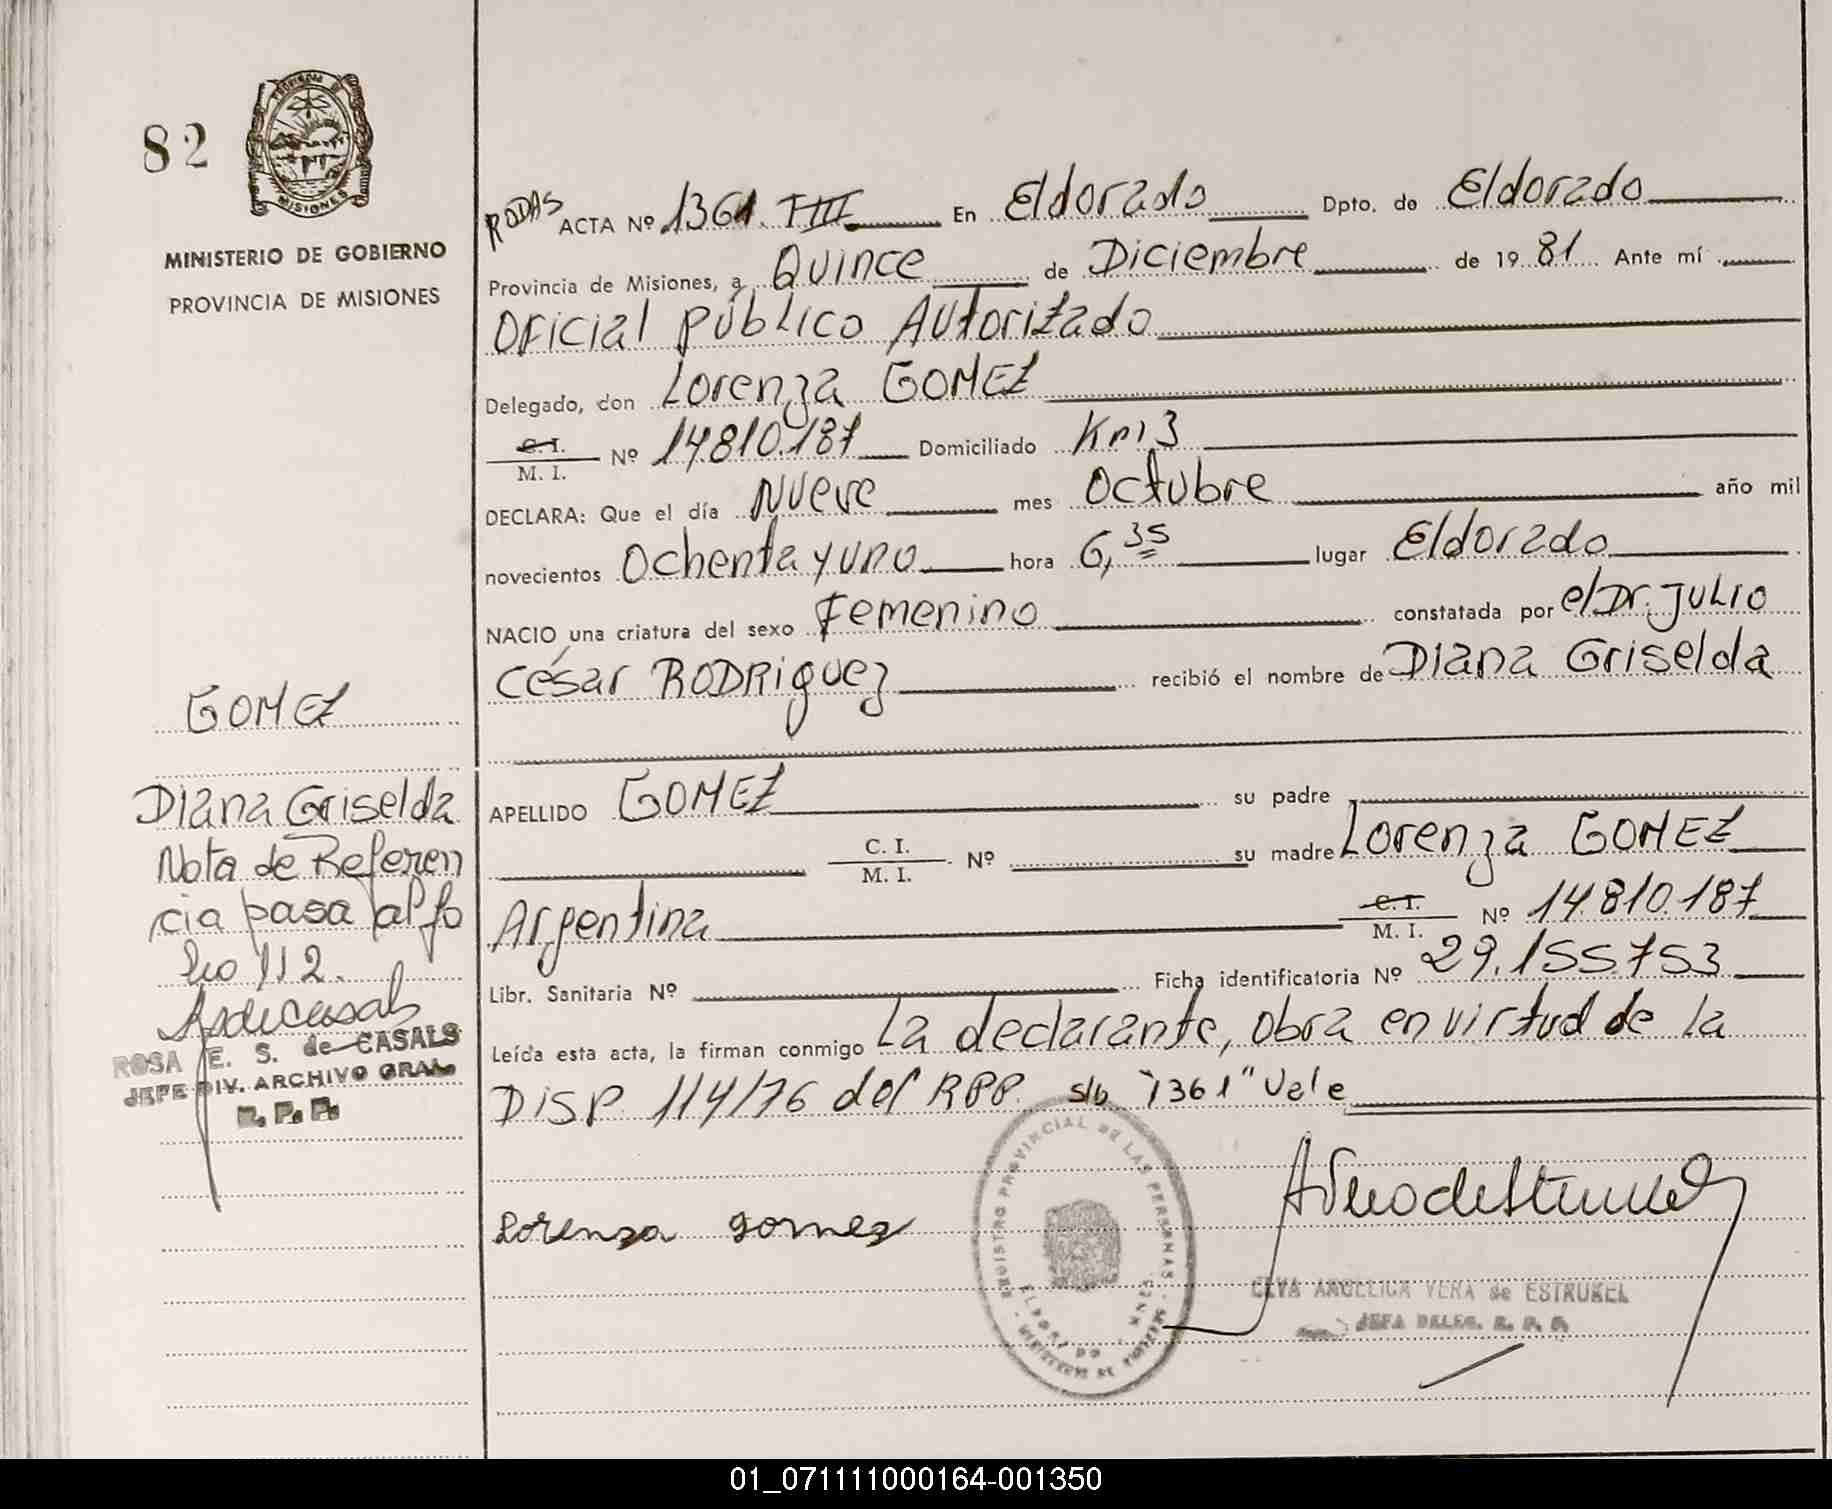 82
PROVINCIA DE
MISIONES
MINISTERIO DE GOBIERNO
PROVINCIA DE MISIONES
RODAS ACTA Nº 1361. TIII En Eldorado Dpto. de Eldorado
Provincia de Misiones, a Quince de Diciembre de 19 81 Ante mí
Oficial Público Autorizado
Delegado, don Lorenza GOMEZ
C. I.
M. I. Nº 14810.187 Domiciliado Km 3
DECLARA: Que el día Nueve mes Octubre año mil
novecientos Ochenta y uno hora 6,35 lugar Eldorado
NACIO una criatura del sexo Femenino constatada por el Dr. JULIO
César RODRiguez recibió el nombre de Diana Griselda
APELLIDO GOMEZ su padre
C. I.
M. I. Nº su madre Lorenza GOMEZ
Argentina C. I.
M. I. Nº 14.810.187
Libr. Sanitaria Nº Ficha identificatoria Nº 29.155.753
Leída esta acta, la firman conmigo La declarante, obra en virtud de la
DISP. 114/76 del RPP. s/b "1361" Vale
Lorenza gomez
REGISTRO PROVINCIAL DE LAS PERSONAS
ELDORADO
ELVA ANGELICA VERA de ESTRUKEL
JEFA DELEG. R. P. P.
GOMEZ
Diana Griselda
Nota de Referen
cia pasa al fo
lio 112.
ROSA E. S. de CASALS
JEFE DIV. ARCHIVO GRAL
R. P. P.
01_071111000164-001350